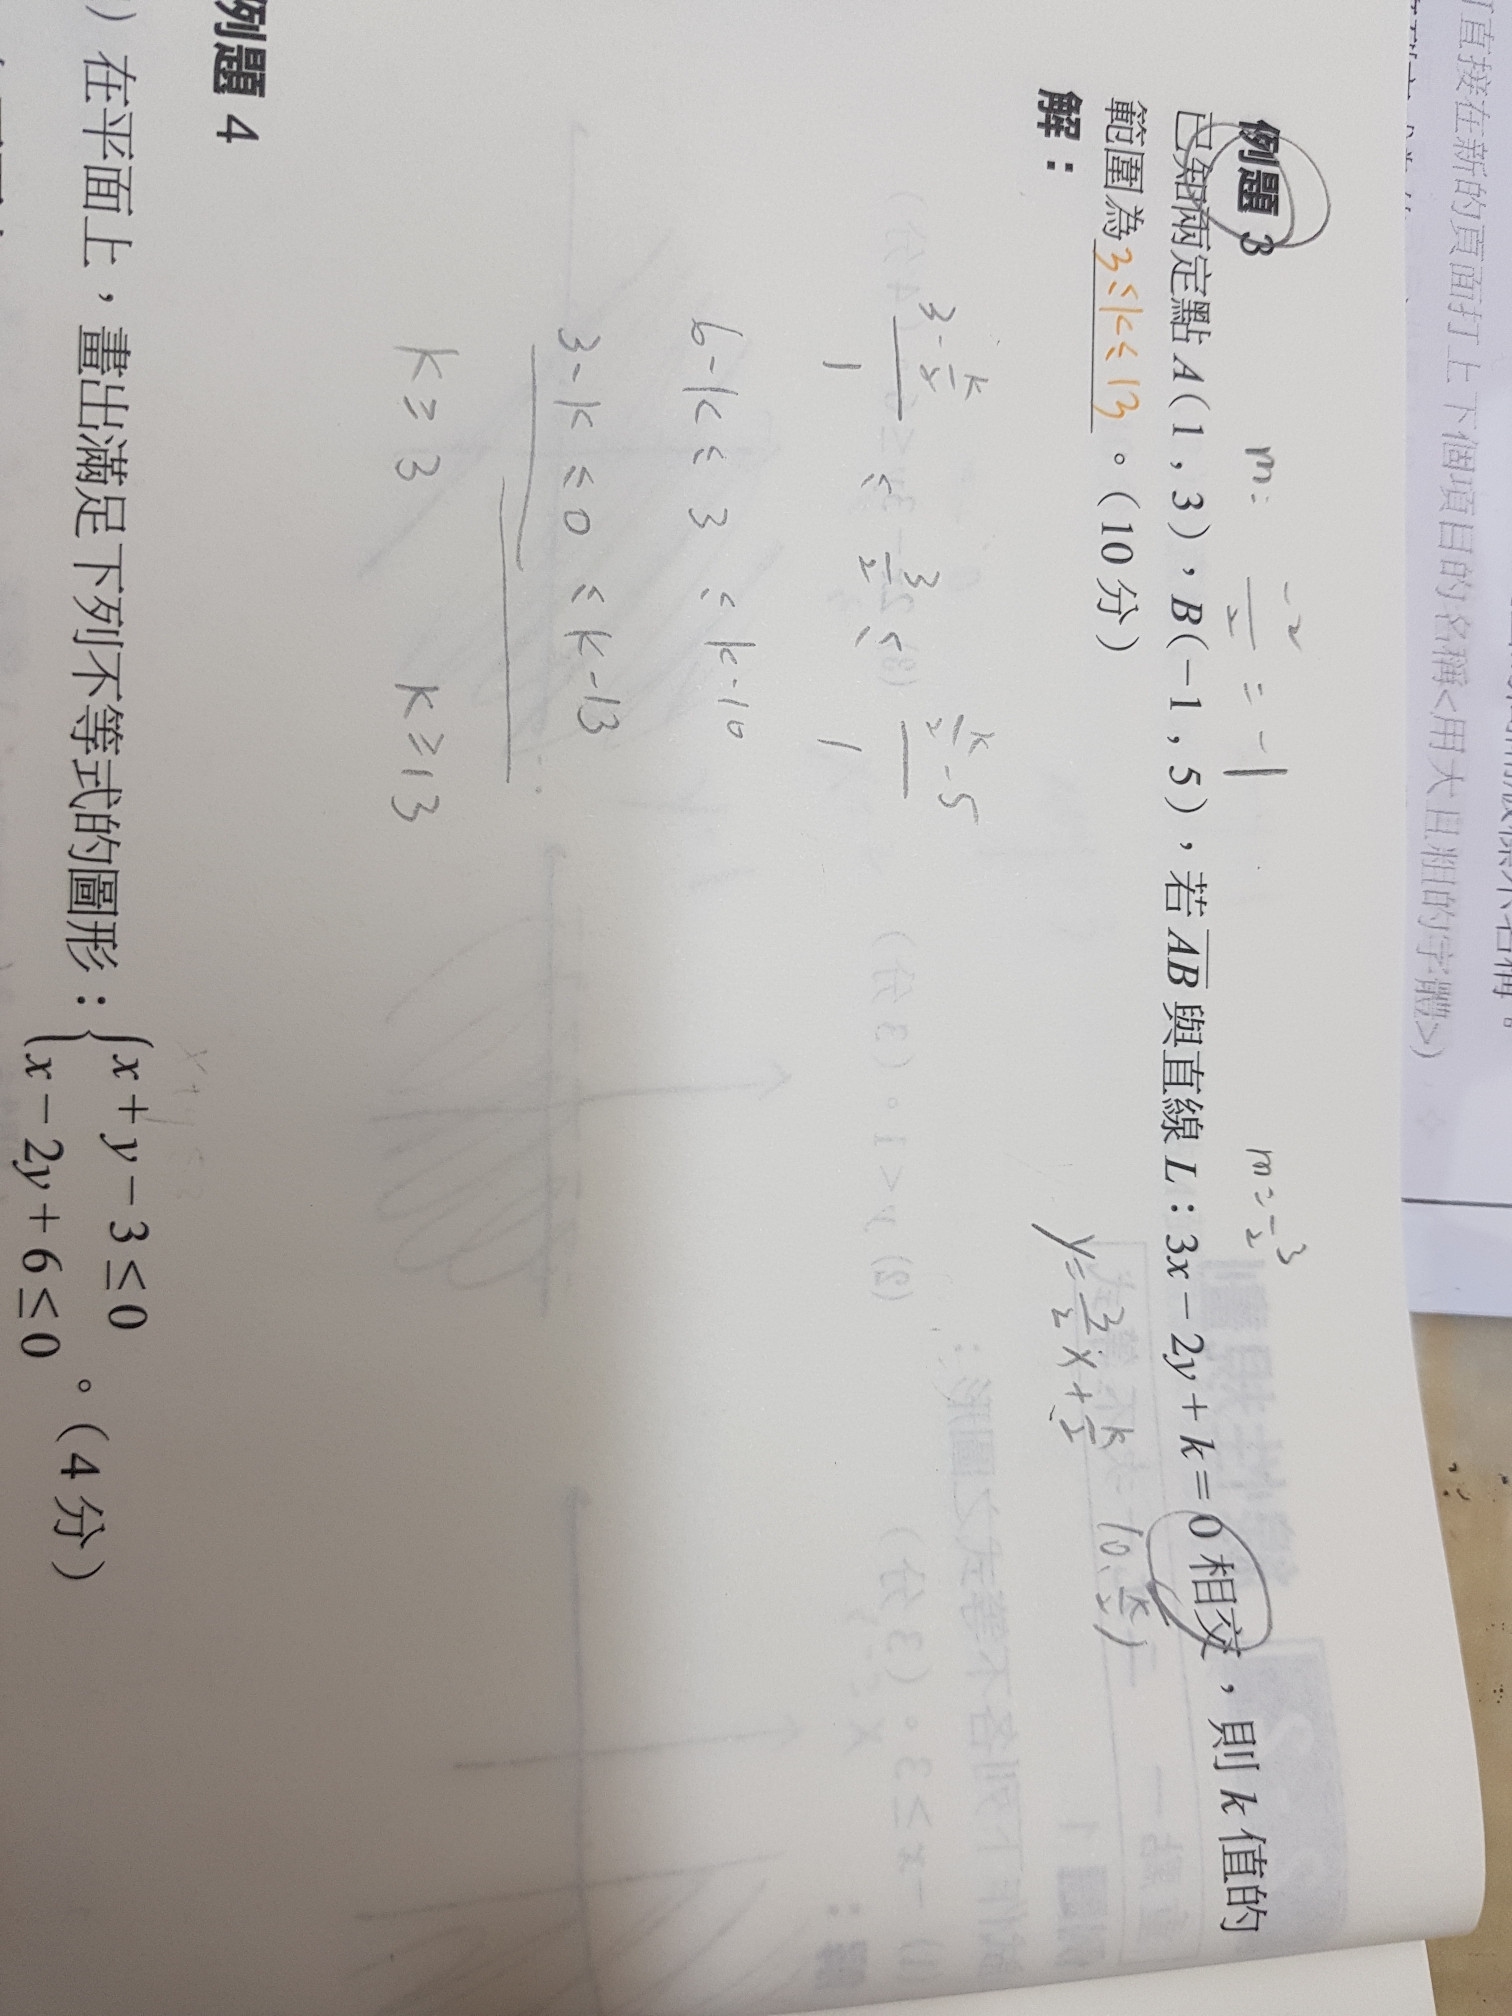 直接在新的頁面打上下個項目的名稱<用大且粗的字體>)
例題 3
m: -2/2 = -1
m=3/2
已知兩定點 A(1,3),B(-1,5),若 AB 與直線 L:3x-2y+k=0 相交,則 k 值的
範圍為 3≤k≤13 。(10 分)
解:
y=3/2x+k/2
(0,k/2)
3-k/2 / 1 ≤ 3/2 ≤ k/2-5 / 1
6-k ≤ 3 ≤ k-10
3-k ≤ 0 ≤ k-13
k≥3 k≥13
例題 4
) 在平面上,畫出滿足下列不等式的圖形:{x+y-3≤0
x-2y+6≤0 。(4 分)